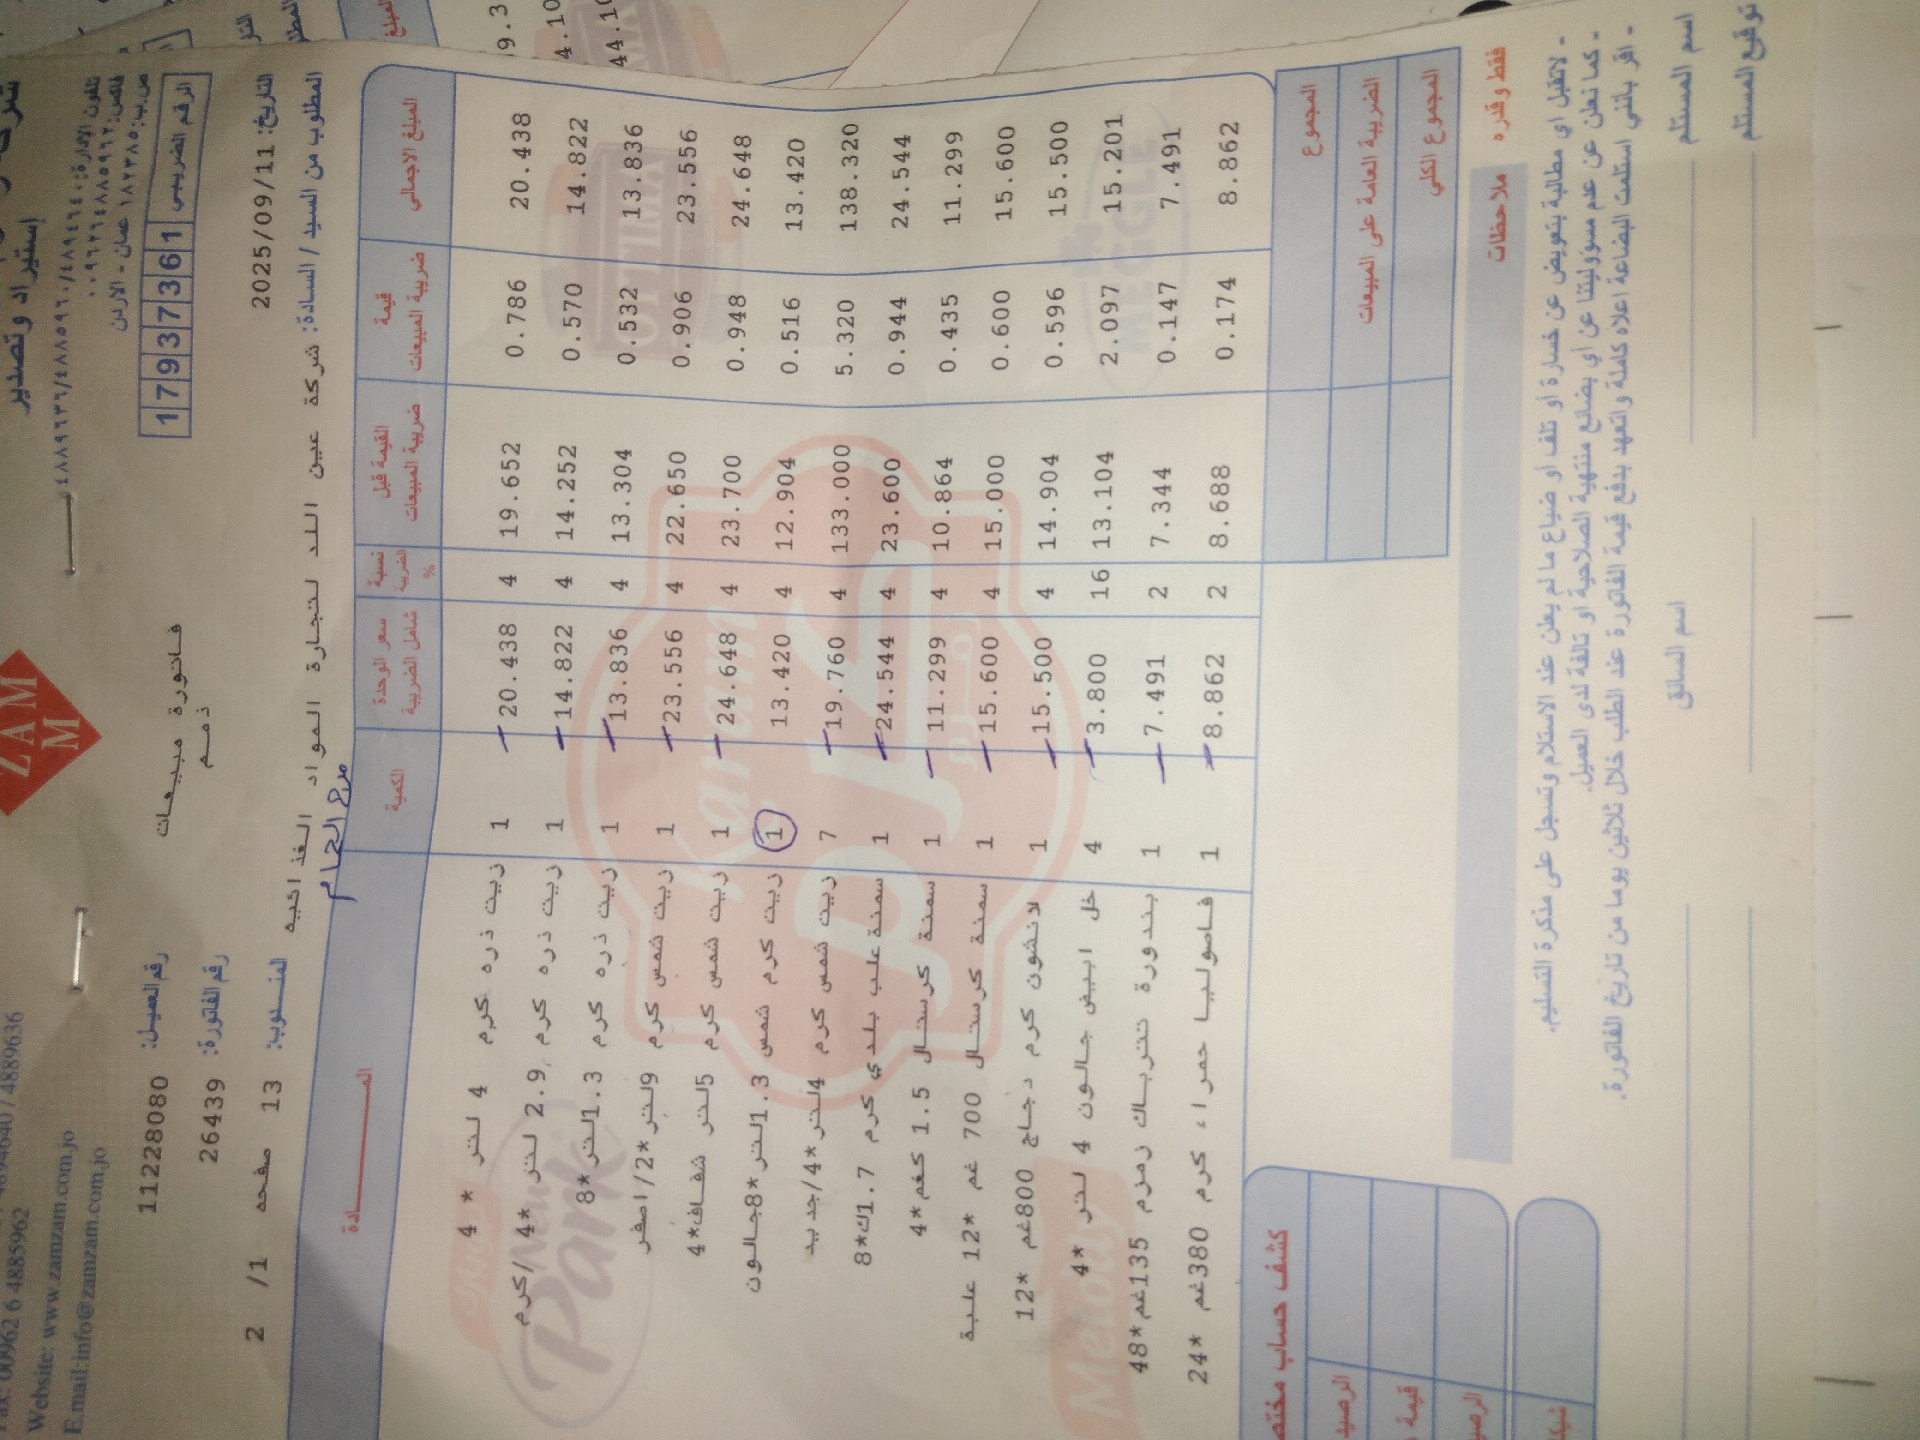 ZAM
M
Fax: 00962 6 4885962
Website: www.zamzam.com.jo
E.mail:info@zamzam.com.jo
إستيراد وتصدير
فاكس: ٠٠٩٦٢٦٤٨٨٥٩٦٢
عمان - الاردن
الرقم الضريبي 1 7 9 3 7 3 6 1
فاتورة مبيعات
ذمم
رقم العميل: 11228080
رقم الفاتورة: 26439
المندوب: 13 صفحه 1/ 2
التاريخ: 2025/09/11
المطلوب من السيد / السادة: شركة عين اللد لتجارة المواد الغذائيه
مرج الحمام
المــــادة الكمية سعر الوحدة شامل الضريبة نسبة الضريبة % القيمة قبل ضريبة المبيعات قيمة ضريبة المبيعات المبلغ الاجمالي
زيت ذره كرم 4 لتر * 4 1 20.438 4 19.652 0.786 20.438
زيت ذره كرم 2.9 لتر *4/كرم 1 14.822 4 14.252 0.570 14.822
زيت ذره كرم 1.3لتر*8 1 13.836 4 13.304 0.532 13.836
زيت شمس كرم 9لتر*2/اصفر 1 23.556 4 22.650 0.906 23.556
زيت شمس كرم 5لتر شفاف*4 1 24.648 4 23.700 0.948 24.648
زيت كرم شمس 1.3لتر*8جالون 1 13.420 4 12.904 0.516 13.420
زيت شمس كرم 4لتر*4/جديد 7 19.760 4 133.000 5.320 138.320
سمنة علب بلدي كرم 1.7ك*8 1 24.544 4 23.600 0.944 24.544
سمنة كرستال 1.5 كغم*4 1 11.299 4 10.864 0.435 11.299
سمنة كرستال 700 غم *12 علبة 1 15.600 4 15.000 0.600 15.600
لانشون كرم دجاج 800غم *12 1 15.500 4 14.904 0.596 15.500
خل ابيض جالون 4 لتر *4 4 3.800 16 13.104 2.097 15.201
بندورة تترباك زمزم 135غم*48 1 7.491 2 7.344 0.147 7.491
فاصوليا حمراء كرم 380غم *24 1 8.862 2 8.688 0.174 8.862
المجموع
الضريبة العامة على المبيعات
المجموع الكلي
كشف حساب مختص
الرصيد
قيمة
الرصي
فقط وقدره
ملاحظات
- لاتقبل اي مطالبة بتعويض عن خسارة او تلف او ضياع ما لم يعلن عند الاستلام وتسجل على مذكرة التسليم.
- كما نعلن عن عدم مسؤوليتنا عن أي بضائع منتهية الصلاحية او تالفة لدى العميل.
- اقر بأنني استلمت البضاعة اعلاه كاملة واتعهد بدفع قيمة الفاتورة عند الطلب خلال ثلاثين يوما من تاريخ الفاتورة.
اسم المستلم
اسم السائق
توقيع المستلم
Karam
كرم
OPTIMA
MEGGLE
Park
Melody